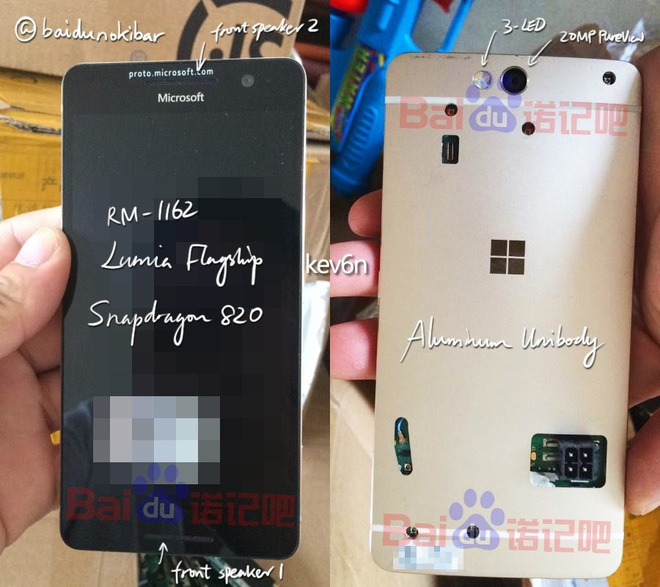 @baidunokibar
front speaker 2
proto.microsoft.com
Microsoft
RM-1162
Lumia Flagship
Snapdragon 820
kev6n
Baidu诺记吧
front speaker 1
3-LED
20MP PureView
Baidu诺记吧
Aluminum Unibody
Baidu诺记吧